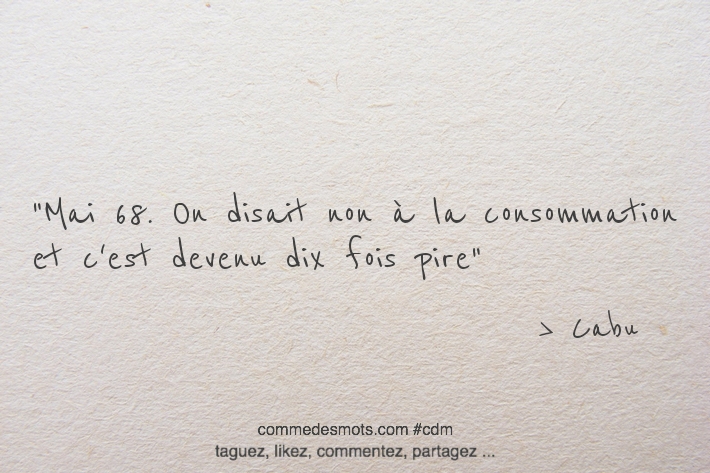 "Mai 68. On disait non à la consommation
et c'est devenu dix fois pire"
> Cabu
commedesmots.com #cdm
taguez, likez, commentez, partagez ...